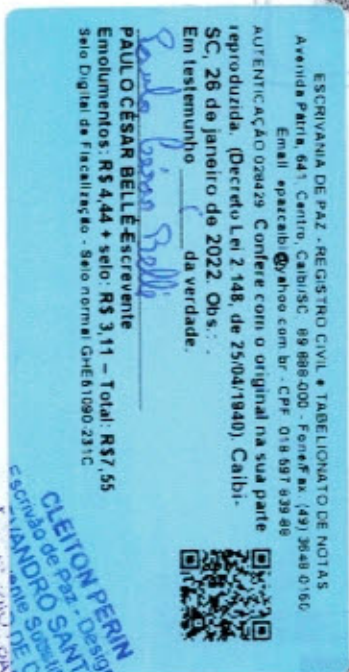 ESCRIVANIA DE PAZ - REGISTRO CIVIL e TABELIONATO DE NOTAS
Avenida Pátria, 641, Centro, Caibi/SC, 89.888-000 - Fone/Fax: (49) 3648 0160
Email: epazcaibi@yahoo.com.br - CPF 018 697 639 88
AUTENTICAÇÃO 028429 Confere com o original na sua parte
reproduzida. (Decreto Lei 2.148, de 25/04/1940). Caibi-
SC, 26 de janeiro de 2022. Obs.: .
Em testemunho da verdade.
Paulo César Bellé
PAULO CÉSAR BELLÉ-Escrevente
Emolumentos: R$ 4,44 + selo: R$ 3,11 – Total: R$7,55
Selo Digital de Fiscalização - Selo normal GHE61090-231C
CLEITON PERIN
Escrivão de Paz - Desig
VANDRO SANT